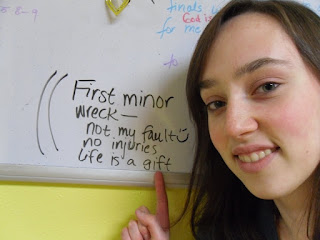 5 8-9
finals
God is
for me
to
First minor
wreck—
not my fault :)
no injuries
life is a gift